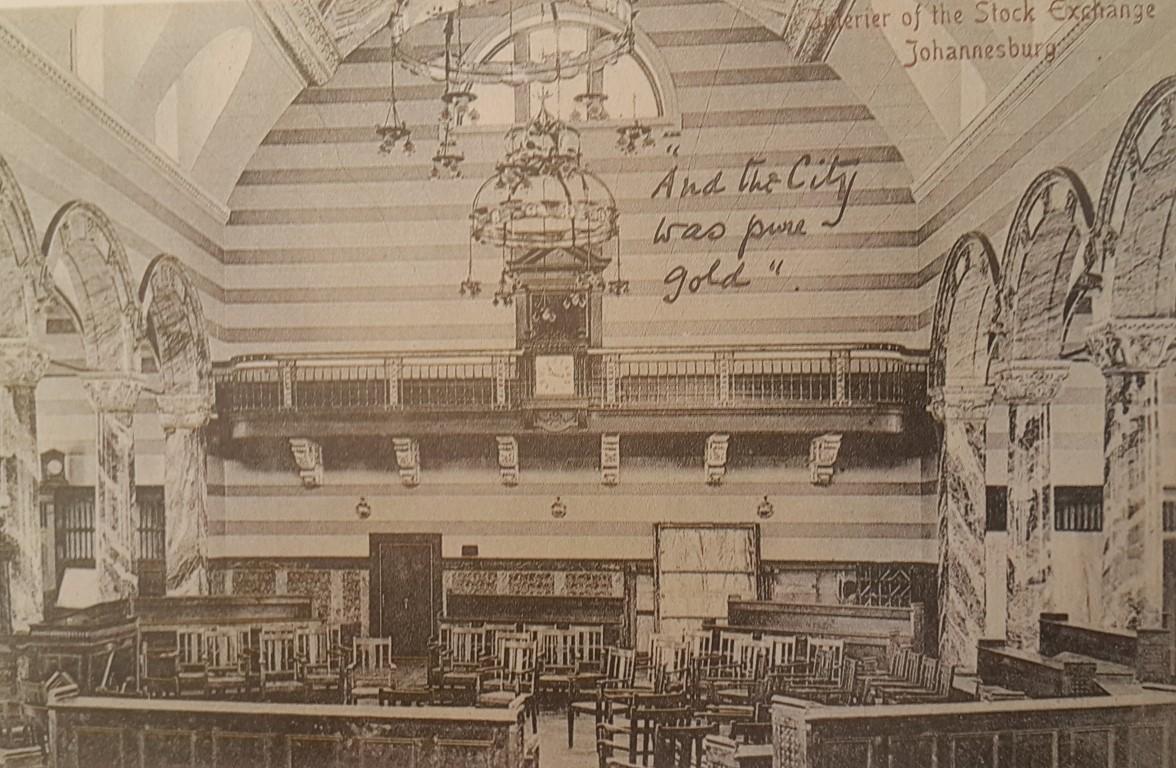 Interier of the Stock Exchange
Johannesburg
"And the City
was pure
gold".